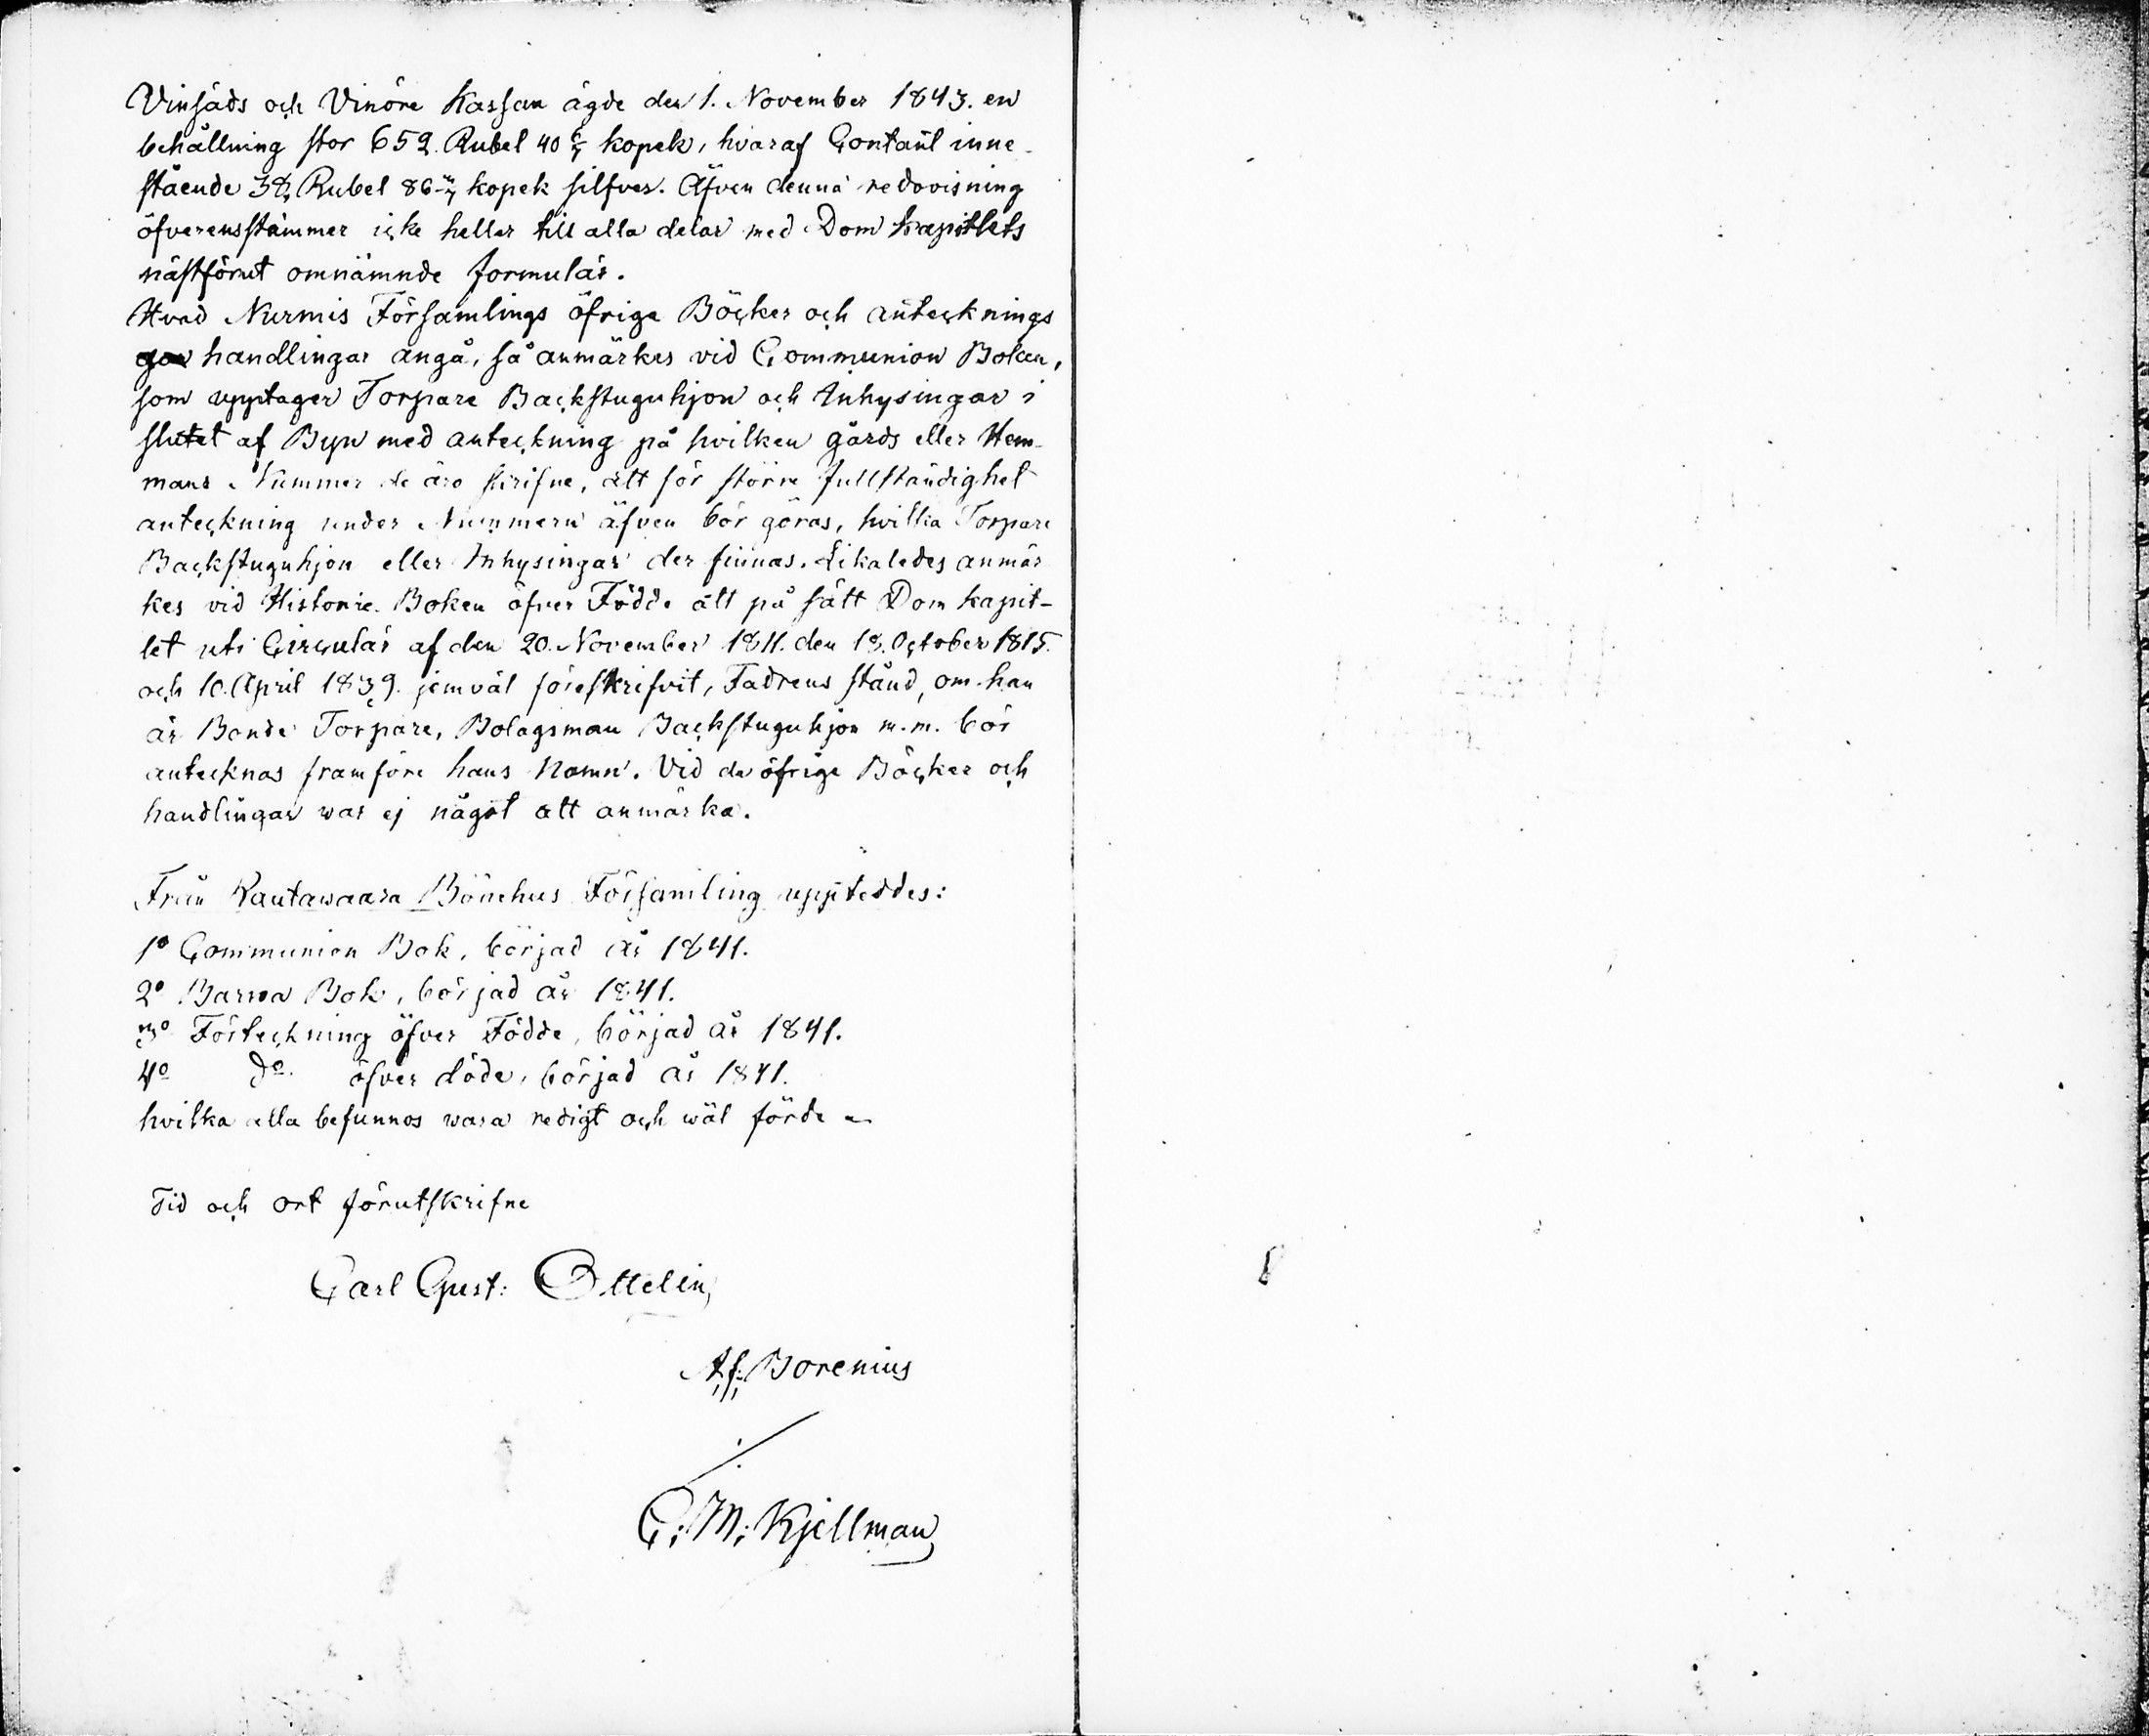 Vinsäds och Vinöre Kassan ägde den 1. November 1843. en
behållning stor 652. Rubel 40 6/7 kopek, hvaraf Contant inne-
stående Rubel kopek silfver. Äfven denna redovisning
öfverensstämmer icke heller till alla delar med Dom kapitlets
nästförut omnämnde formulär.
Hvad Nurmis Församlings öfriga Böcker och antecknings
handlingar angå, så anmärkes vid Communion Boken,
som upptager Torpare Backstuguhjon och Inhysingar i
slutet af Byn med anteckning på hvilken gårds eller Hem-
mans Nummer de äro skrifne, att för större fullständighet
anteckning under Nummern äfven bör göras, hvilka Torpare
Backstuguhjon eller Inhysingar der finnas. Likaledes anmär
kes vid Historie Boken öfver Födde att på sätt Dom kapit-
let uti Circulär af den 20. November 1811. den 18. October 1815.
och 10. April 1839. jemväl föreskrifvit, Fadrens stånd, om han
är Bonde Torpare, Bolagsman Backstuguhjon m.m. bör
antecknas framföre hans Namn. Vid de öfrige Böcker och
handlingar war ej något att anmärka.
Från Rautawaara Bönehus Församling uppteddes:
1º Communion Bok, börjad år 1841.
2º Barna Bok, börjad år 1841.
3º Förteckning öfver Födde, börjad år 1841.
4º dº. öfver döde, börjad år 1841.
hvilka alla befunnos wara redigt och wäl förde
Tid och ort förutskrifne
Carl Gust: Ottelin,
Af: Borenius
C: M: Kjellman